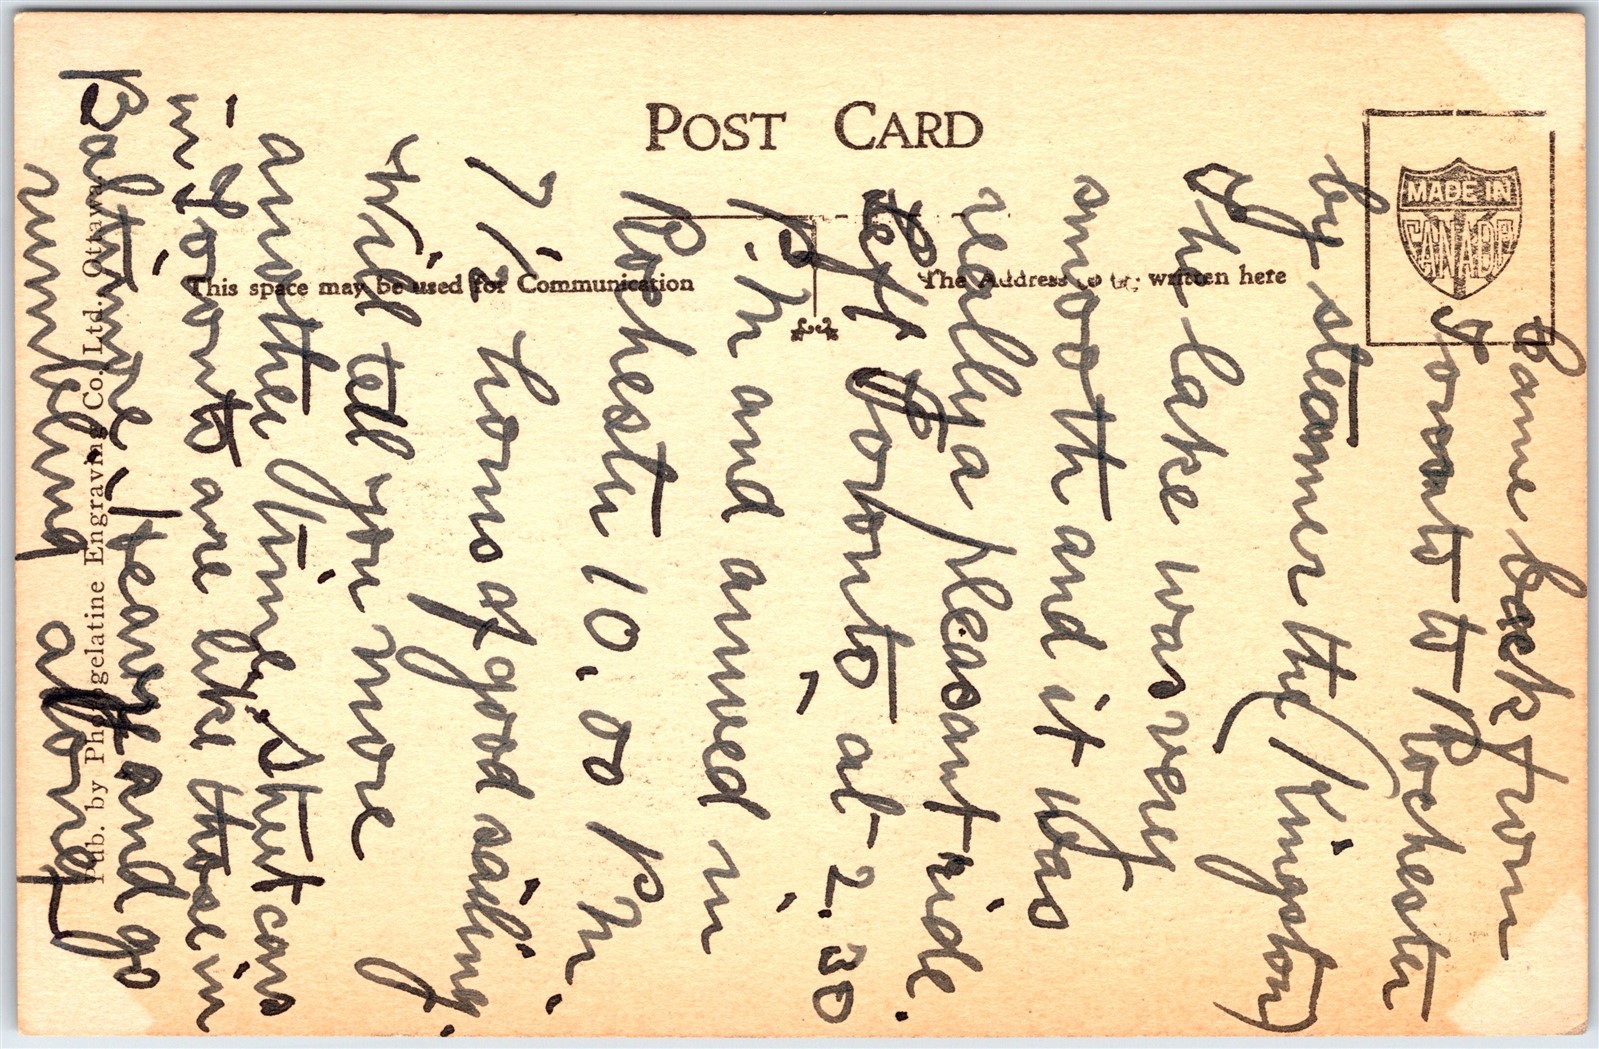 POST CARD
MADE IN
CANADA
This space may be used for Communication
The Address to be written here
Pub. by Photogelatine Engraving Co. Ltd., Ottawa.
Came back from
Toronto to Rochester
by steamer the Kingston,
The lake was very
smooth and it was
really a pleasant ride.
Left Toronto at 2.30
P.M and arrived in
Rochester 10.00 P.M.
7 1/2 hours of good sailing.
Will tell you more
another time. Street cars
in Toronto are like those in
Baltimore, heavy and go
rumbling along